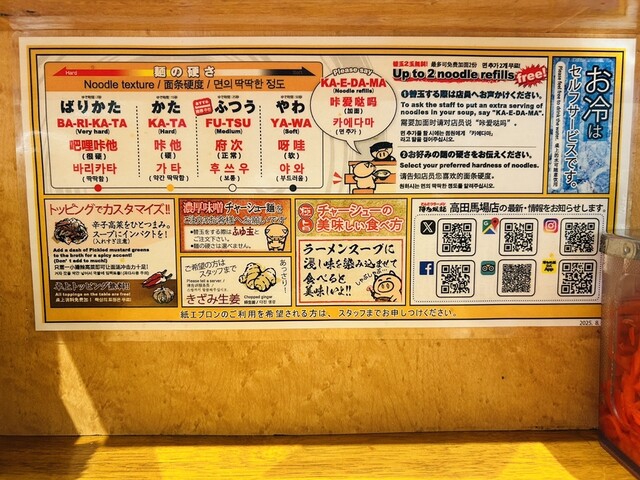 Hard
麺の硬さ
Noodle texture / 面条硬度 / 면의 딱딱한 정도
ばりかた
BA-RI-KA-TA
(Very hard)
吧哩咔他
(很硬)
바리카타
(딱딱함)
かた
KA-TA
(Hard)
咔他
(硬)
가타
(약간 딱딱함)
ふつう
FU-TSU
(Medium)
府次
(正常)
후쓰우
(보통)
やわ
YA-WA
(Soft)
呀哇
(软)
야와
(부드러움)
Please say
KA-E-DA-MA
(Noodle refills)
咔爱哒吗
(加面)
카에다마
(면 추가)
替玉2玉無料! 最多可免费加面2份 면 추가 2개 무료!
Up to 2 noodle refills free!
❶替玉する際は店員へお声がけください。
To ask the staff to put an extra serving of
noodles in your soup, say "KA-E-DA-MA".
需要加面时请对店员说"咔爱哒吗"。
❷お好みの麺の硬さをお伝えください。
Select your preferred hardness of noodles.
请告知店员您喜欢的面条硬度。
お冷は
セルフサービスです。
トッピングでカスタマイズ!!
辛子高菜をひとつまみ。
スープにインパクトを!
(入れすぎ注意)
Add a dash of Pickled mustard greens
to the broth for a spicy accent!
(Don't add to much!)
卓上トッピング無料!!
All toppings on the table are free!
濃厚味噌チャーシュー麺を
●替玉をする際はふゆ玉と
ご注文下さい。
●麺の硬さは選べません。
ご希望の方は
スタッフまで
あっさり!
きざみ生姜
Chopped ginger
チャーシューの
美味しい食べ方
ラーメンスープに
浸け味を染み込ませて
食べると
美味しいよ!!
高田馬場店の最新・情報をお知らせします。
紙エプロンのご利用を希望される方は、スタッフまでお申しつけください。
2025. 8.